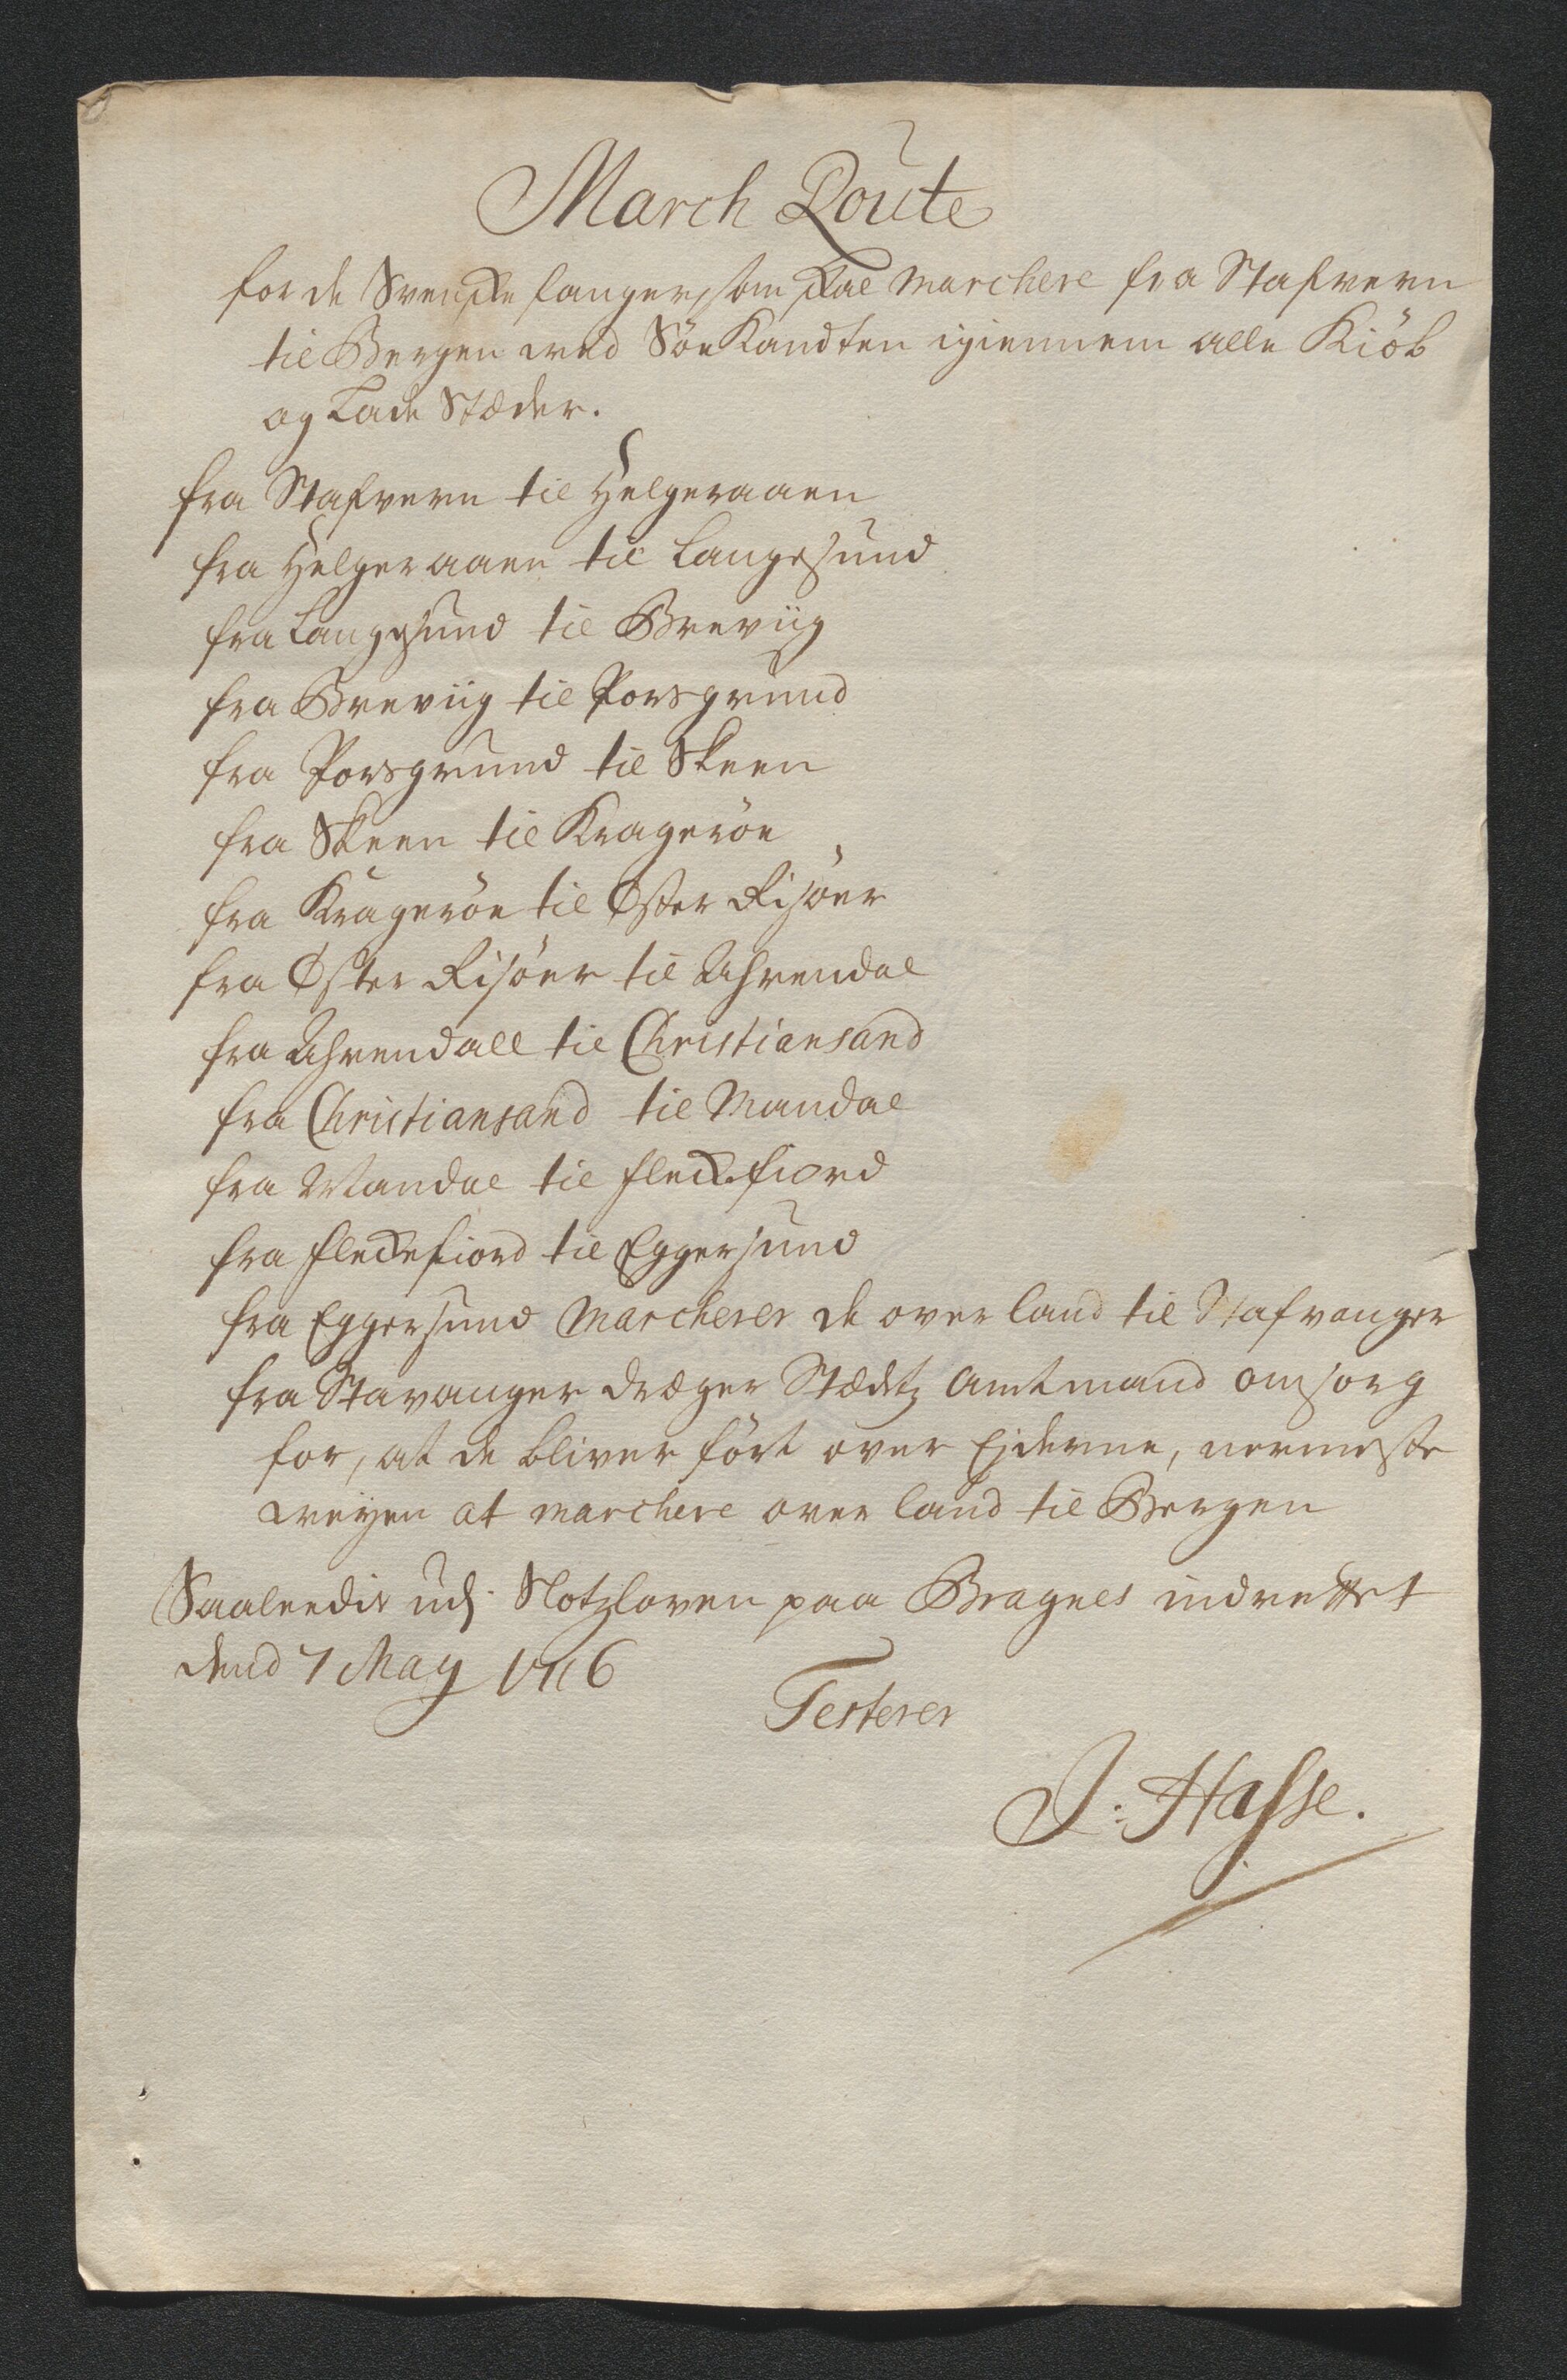 March Route
for de Svenske fanger, som skal marchere fra Stafvern
til Bergen ved Søe Kandten igiennem alle Kiøb
og Lade Stæder.
fra Stafvern til Helgeraaen
fra Helgeraaen til Langesund
fra Langesund til Breviig
fra Breviig til Porsgrund
fra Porsgrund til Skeen
fra Skeen til Kragerøe
fra Kragerøe til Øster Risøer
fra Øster Risøer til Ahrendal
fra Ahrendall til Christiansand
fra Christiansand til Mandal
fra Mandal til fleckefiord
fra fleckefiord til Eggersund
fra Eggersund marcherer de over land til Stafvanger
fra Stavanger drager Stædetz Amtmand omsorg
for, at de bliver ført over fjderne, nermeste
weyen at marchere over land til Bergen
Saaleedis udj Slotzloven paa Bragnes indrettet
dend 7 May 1716
Testerer
J: Hasse.